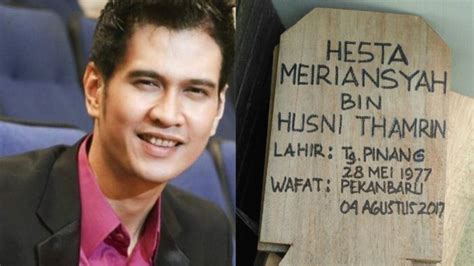 HESTA
MEIRIANSYAH
BIN
HUSNI THAMRIN
LAHIR: Tg. PINANG
28 MEI 1977
WAFAT: PEKANBARU
04 AGUSTUS 2017